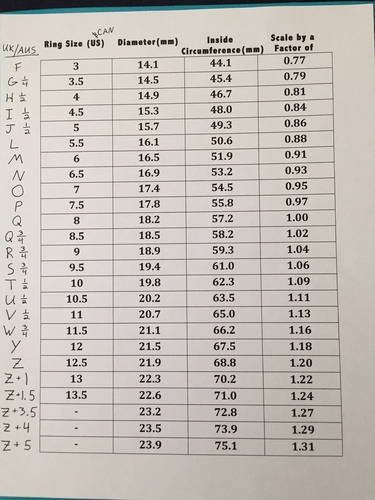 UK/AUS Ring Size (US) /CAN Diameter(mm) Inside Circumference(mm) Scale by a Factor of
F 3 14.1 44.1 0.77
G 1/4 3.5 14.5 45.4 0.79
H 1/2 4 14.9 46.7 0.81
I 1/2 4.5 15.3 48.0 0.84
J 1/2 5 15.7 49.3 0.86
L 5.5 16.1 50.6 0.88
M 6 16.5 51.9 0.91
N 6.5 16.9 53.2 0.93
O 7 17.4 54.5 0.95
P 7.5 17.8 55.8 0.97
Q 8 18.2 57.2 1.00
Q 3/4 8.5 18.5 58.2 1.02
R 3/4 9 18.9 59.3 1.04
S 3/4 9.5 19.4 61.0 1.06
T 1/2 10 19.8 62.3 1.09
U 1/2 10.5 20.2 63.5 1.11
V 1/2 11 20.7 65.0 1.13
W 3/4 11.5 21.1 66.2 1.16
Y 12 21.5 67.5 1.18
Z 12.5 21.9 68.8 1.20
Z+1 13 22.3 70.2 1.22
Z+1.5 13.5 22.6 71.0 1.24
Z+3.5 - 23.2 72.8 1.27
Z+4 - 23.5 73.9 1.29
Z+5 - 23.9 75.1 1.31